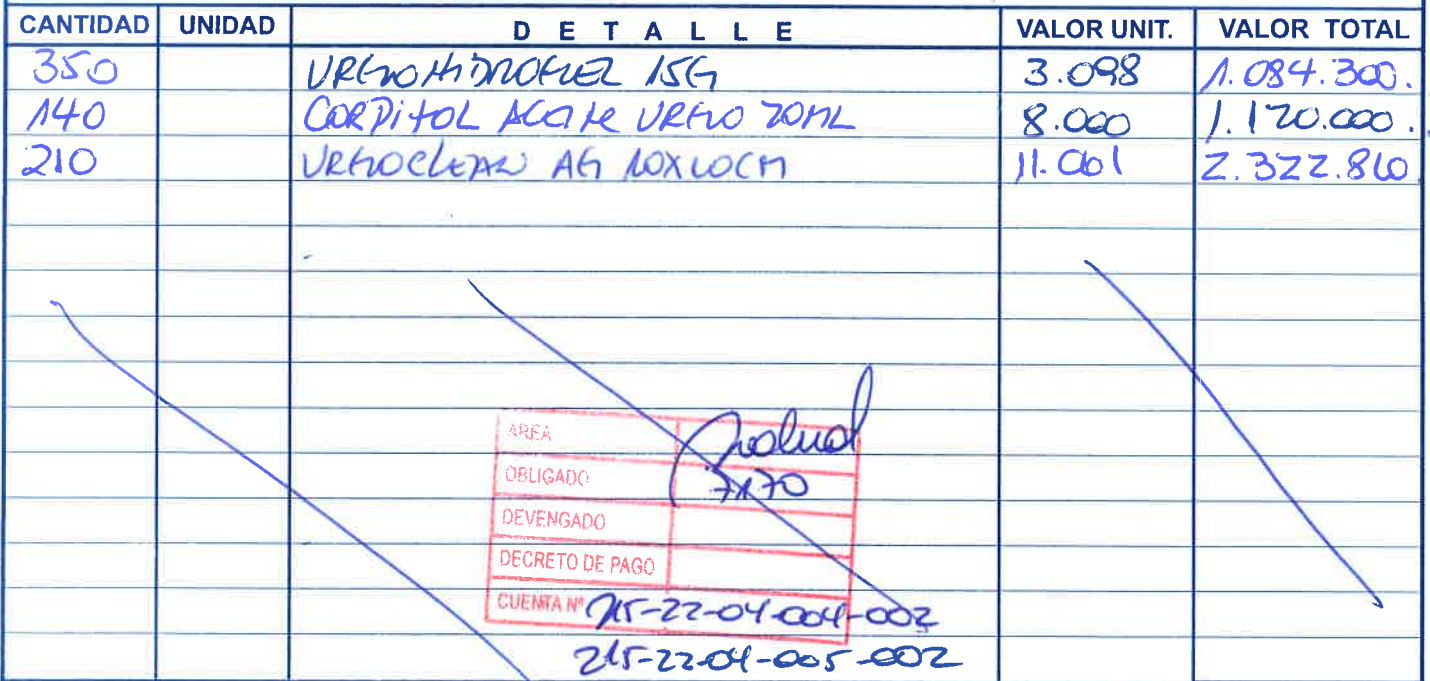 CANTIDAD UNIDAD DETALLE VALOR UNIT. VALOR TOTAL
350 URGOHIDROGEL 15G 3.098 1.084.300.
140 CORPITOL ACEITE URGO 20ML 8.000 1.120.000.
210 URGOCLEAN AG 10X10CM 11.061 2.322.810
AREA Salud
OBLIGADO 7170
DEVENGADO
DECRETO DE PAGO
CUENTA Nº 215-22-04-004-002
215-22-04-005-002